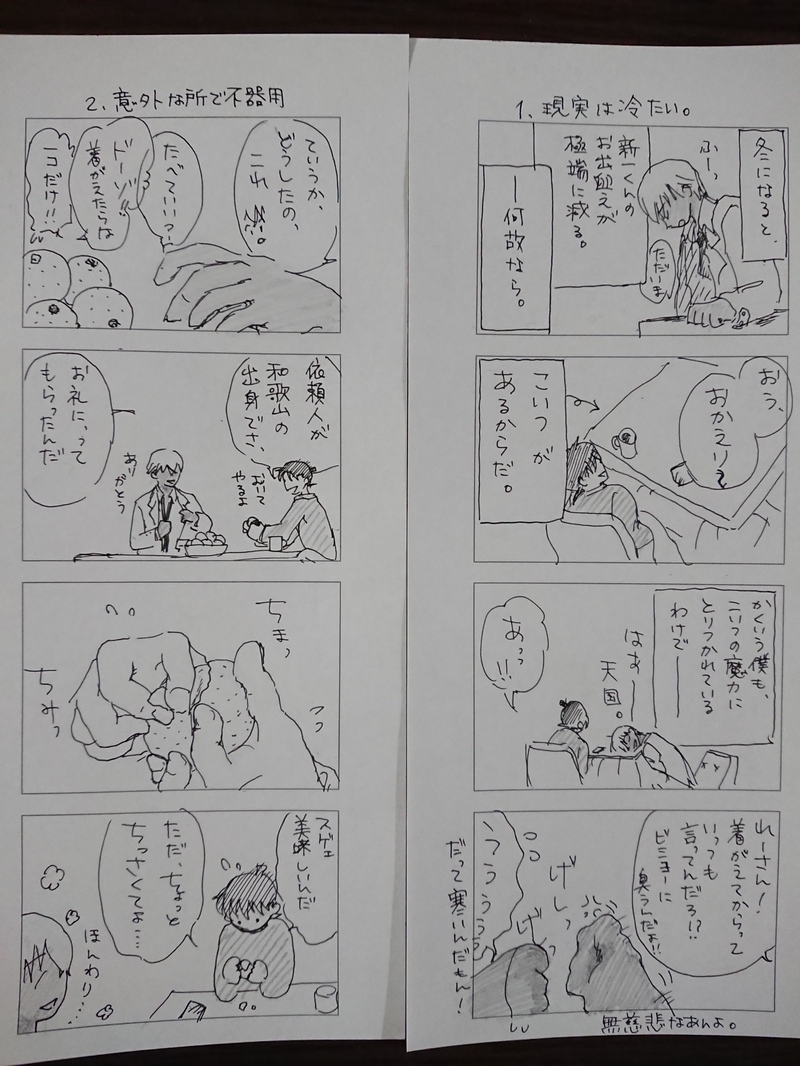 1、現実は冷たい。
冬になると、
ふーっ
ただいまー
新一くんの
お出迎えが
極端に減る。
―何故なら。
おう、
おかえりぃ
こいつが
あるからだ。
かくいう僕も、
こいつの魔力に
とりつかれている
わけで――
はあー
天国。
あっっ
!!
れーさん!
着がえてからって
いっつも
言ってんだろ!?
ビミョーに
臭うんだよ!!
げしっ
げっ
うううう
だって寒いんだもん!
無慈悲なあんよ。
2、意外な所で不器用
ていうか、
どうしたの、
これ。
たべていい?
ドーゾ!!
着がえたらな
一コだけ!!
依頼人が
和歌山の
出身でさ、
おいて
やるよ
お礼に、って
もらったんだ
ありがとう
ちまっ
ちみっ
スゲェ
美味しいんだ
ただ、ちょっと
ちっさくてよ……
ほんわり…